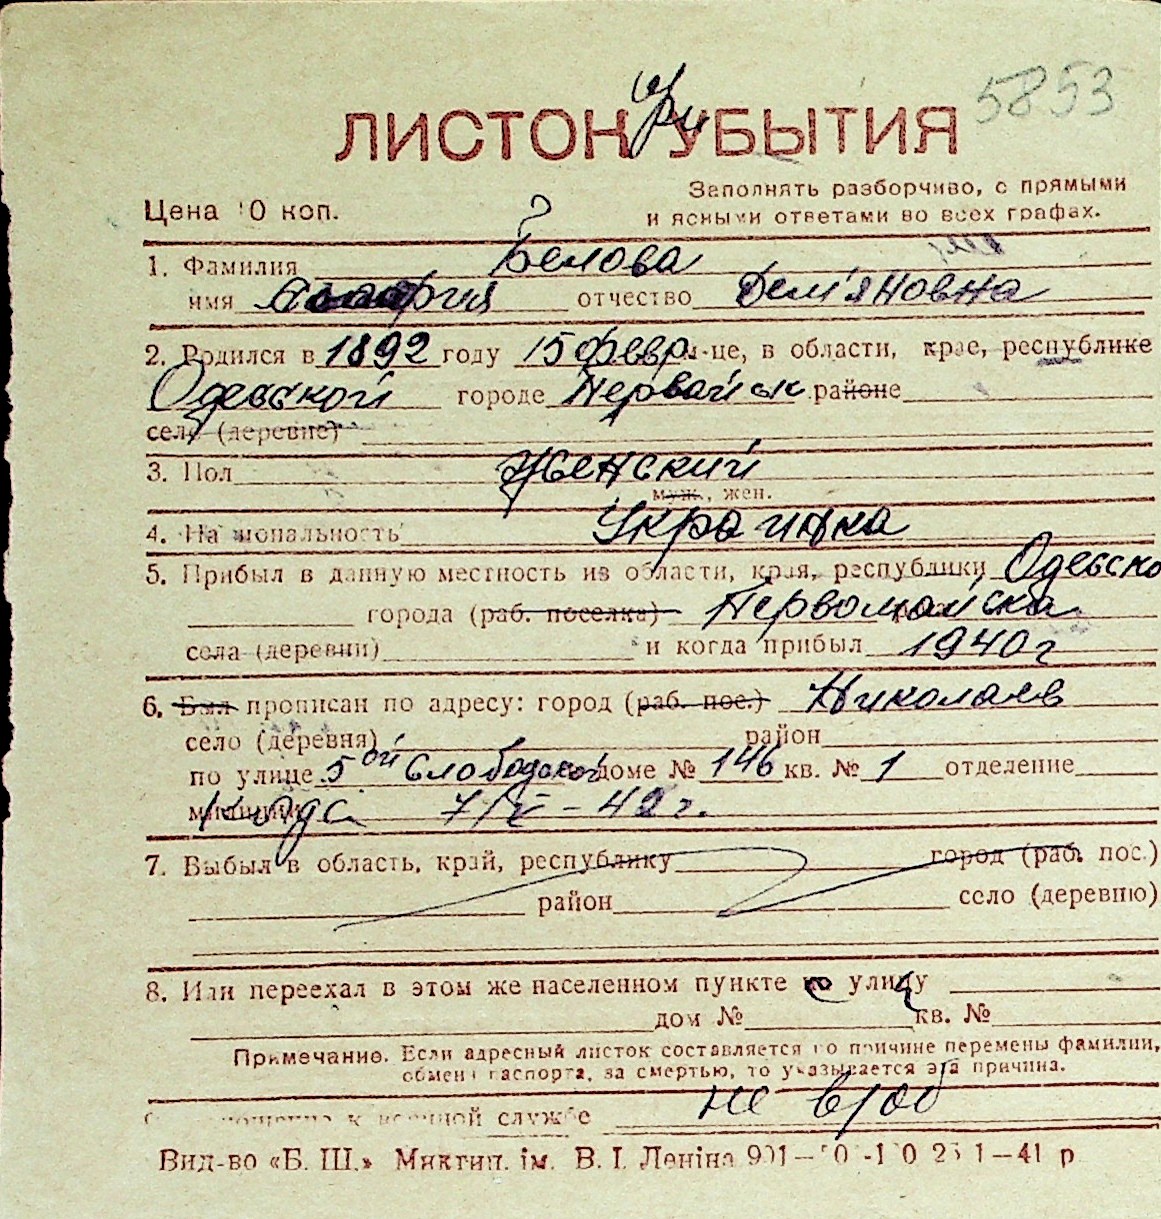 5853
при
ЛИСТОК УБЫТИЯ
Заполнять разборчиво, с прямыми
Цена 10 коп.
и ясными ответами во всех графах.
1. Фамилия Белова
имя отчество Дем'яновна
2. Родился в 1892 году 15 февр м-це, в области, крае, республике
Одесской городе Первомайск районе
село (деревне)
3. Пол Женский
муж., жен.
4. Национальность Украинка
5. Прибыл в данную местность из области, края, республики Одесско
города (раб. поселка) Первомайска
села (деревни) и когда прибыл 1940 г
6. Был прописан по адресу: город (раб. пос.) Николаев
село (деревня) район
по улице 5ой Слободской доме № 146 кв. № 1 отделение
милиции 42 г.
7. Выбыл в область, край, республику город (раб. пос.)
район село (деревню)
8. Или переехал в этом же населенном пункте по улицу
дом № кв. №
Примечание. Если адресный листок составляется по причине перемены фамилии,
обмена паспорта, за смертью, то указывается эта причина.
к военной службе не вроб
Вид-во «Б. Ш.» Миктип. ім. В. І. Леніна